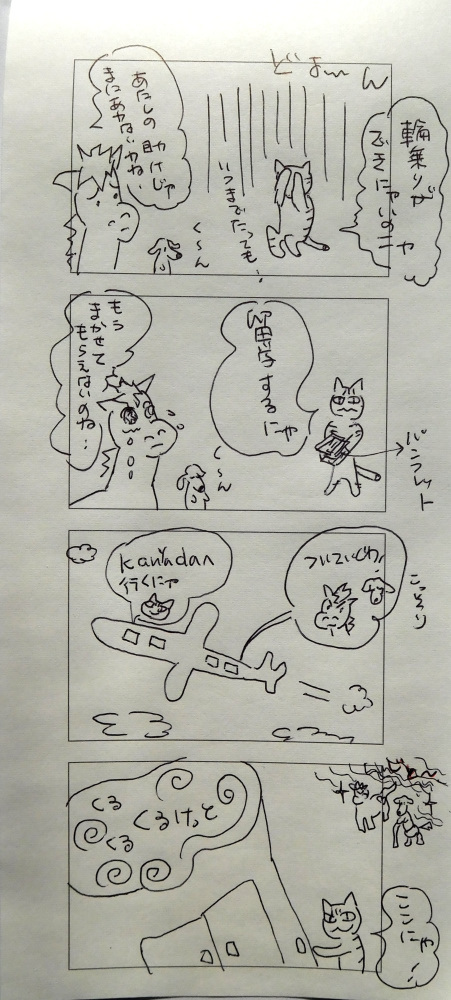 どまーん
輪乗りが
できにゃいのニャ
いつまでたっても…
あたしの助けじゃ
まにあわないかね
く〜ん
留学するにゃ
パンフレット
もう
まかせて
もらえないのね…
く〜ん
ついていくわ
こっそり
行くにゃ
くる
くる
くるけっと
ここにゃ!